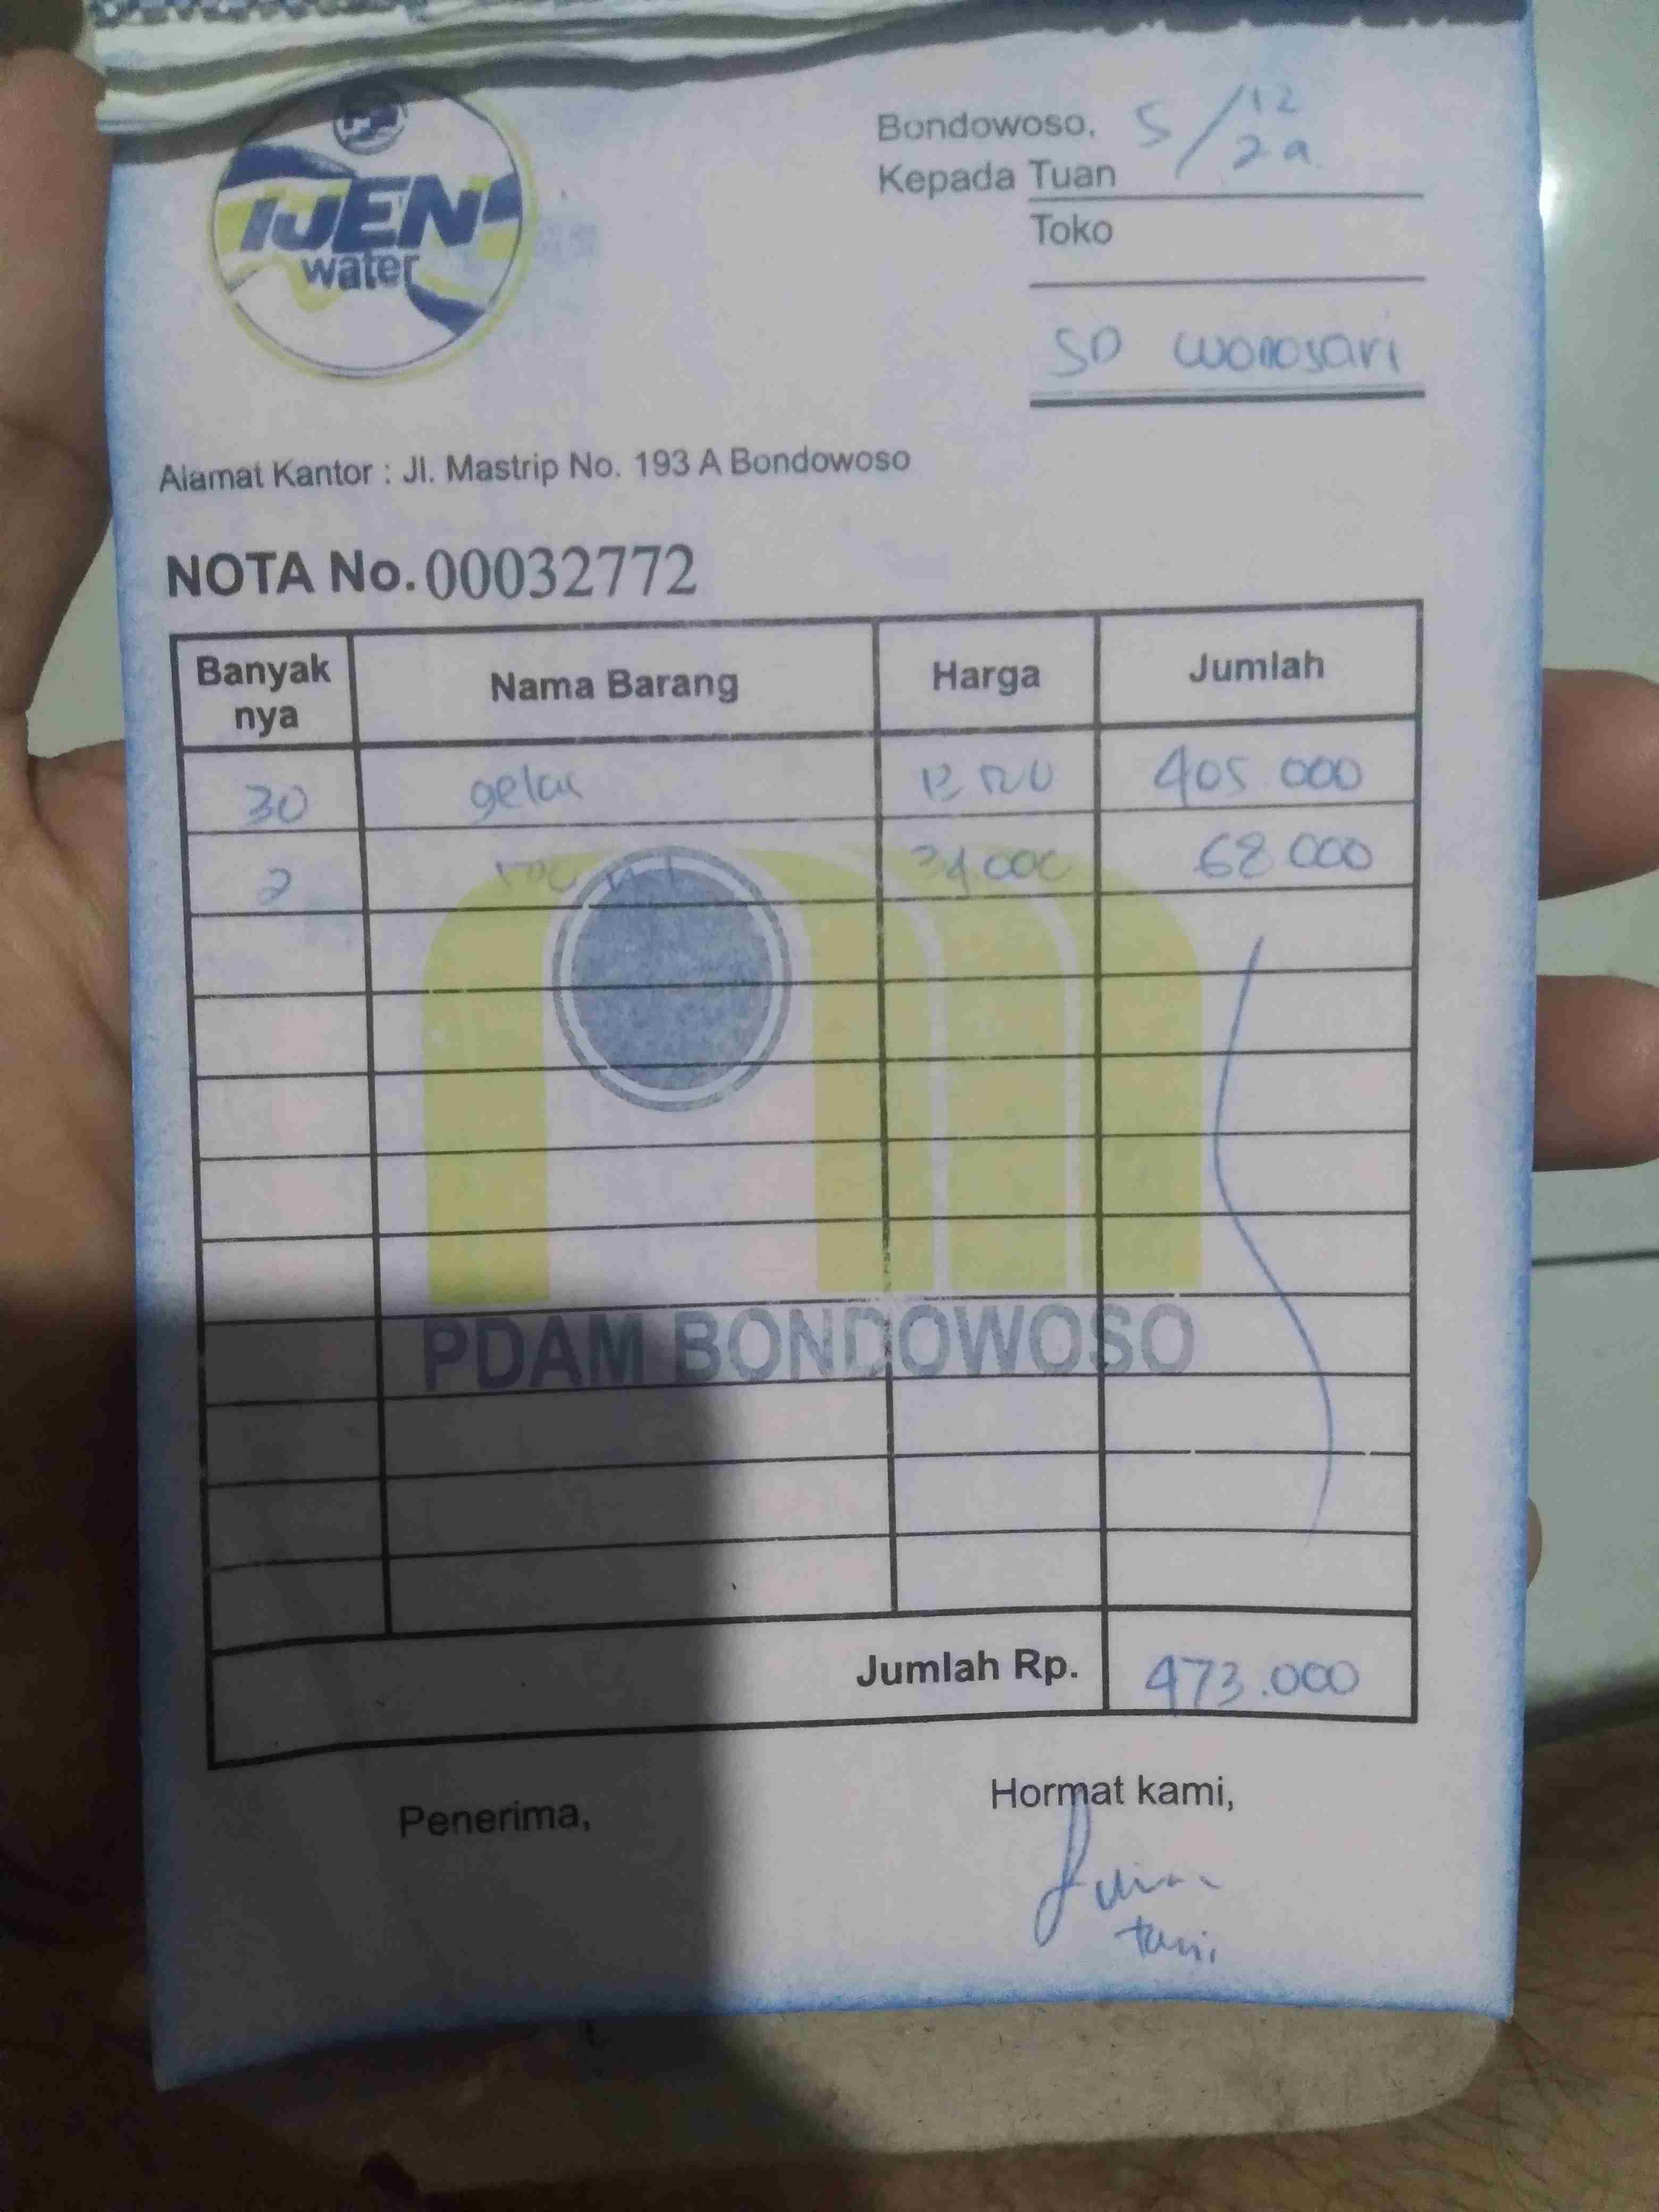 IJEN
water
Bondowoso, 5/12
Kepada Tuan
Toko
SD Wonosari
Alamat Kantor : Jl. Mastrip No. 193 A Bondowoso
NOTA No. 00032772
Banyak nya Nama Barang Harga Jumlah
30 gelas 405 000
2 34 000 68 000
PDAM BONDOWOSO
Jumlah Rp. 473.000
Penerima, Hormat kami,